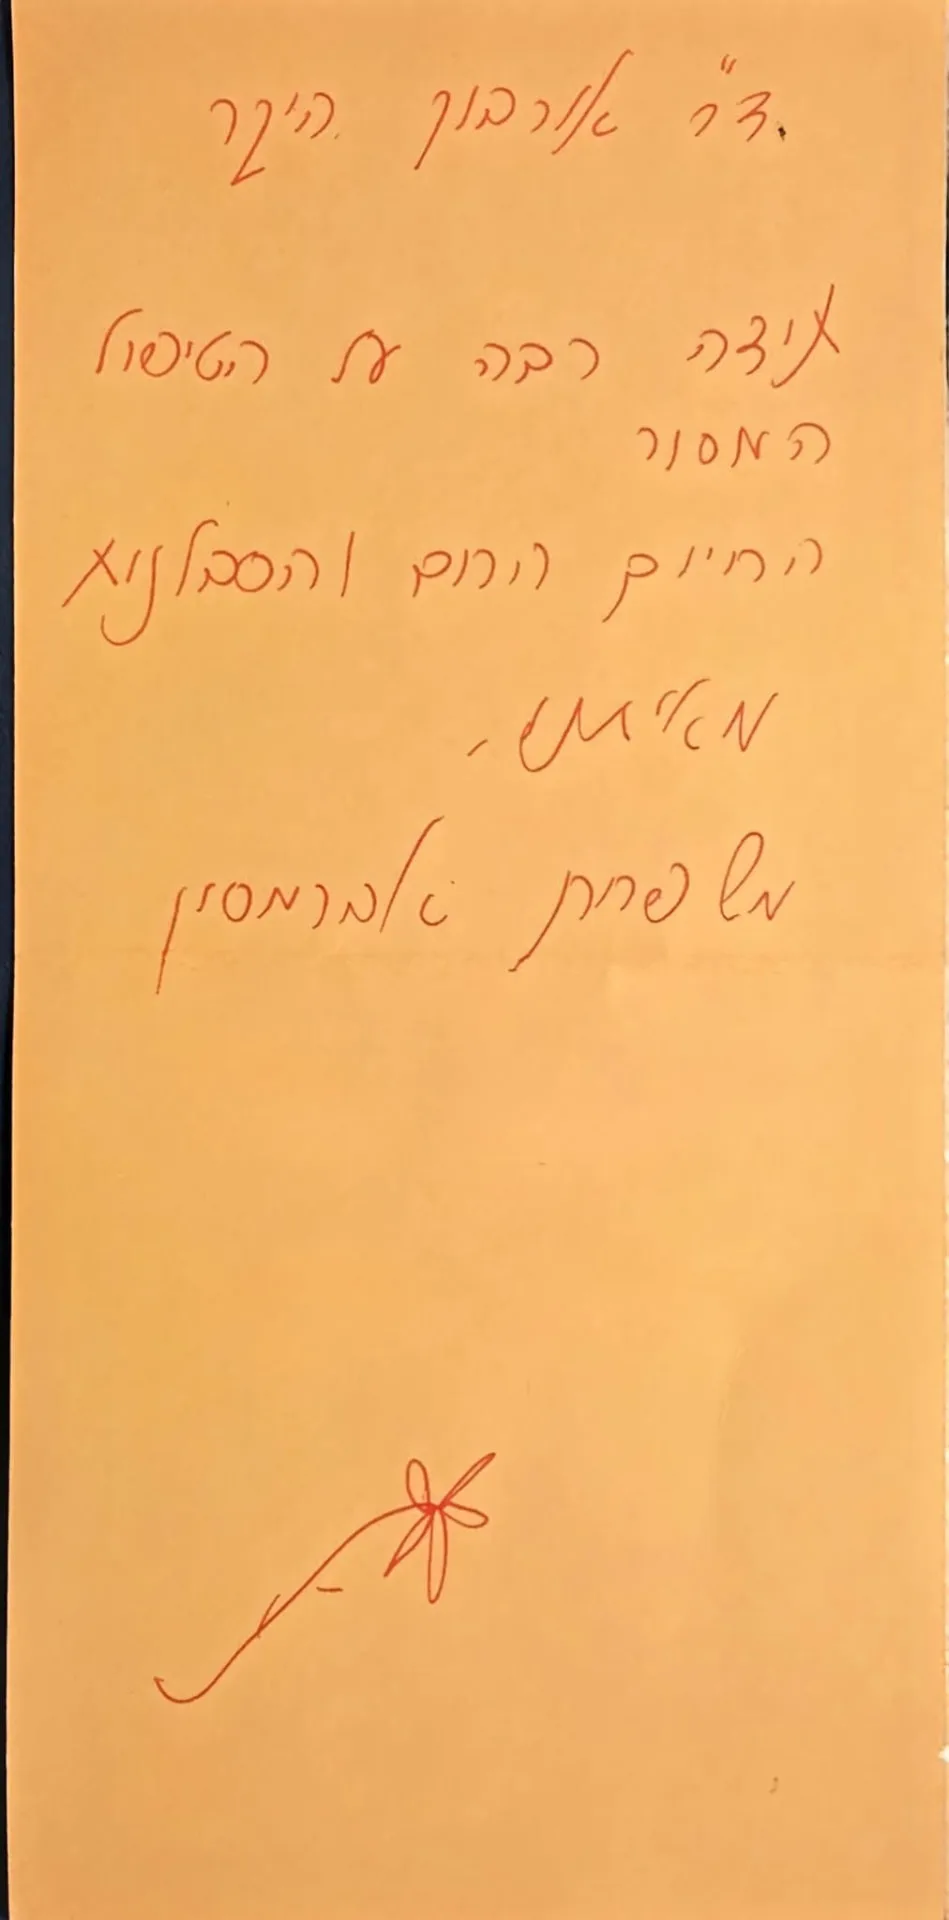 ד"ר אורבוך היקר
תודה רבה על הטיפול
המסור
החיוכים החום והסבלנות
מאיתנו,
משפחת אברמסון